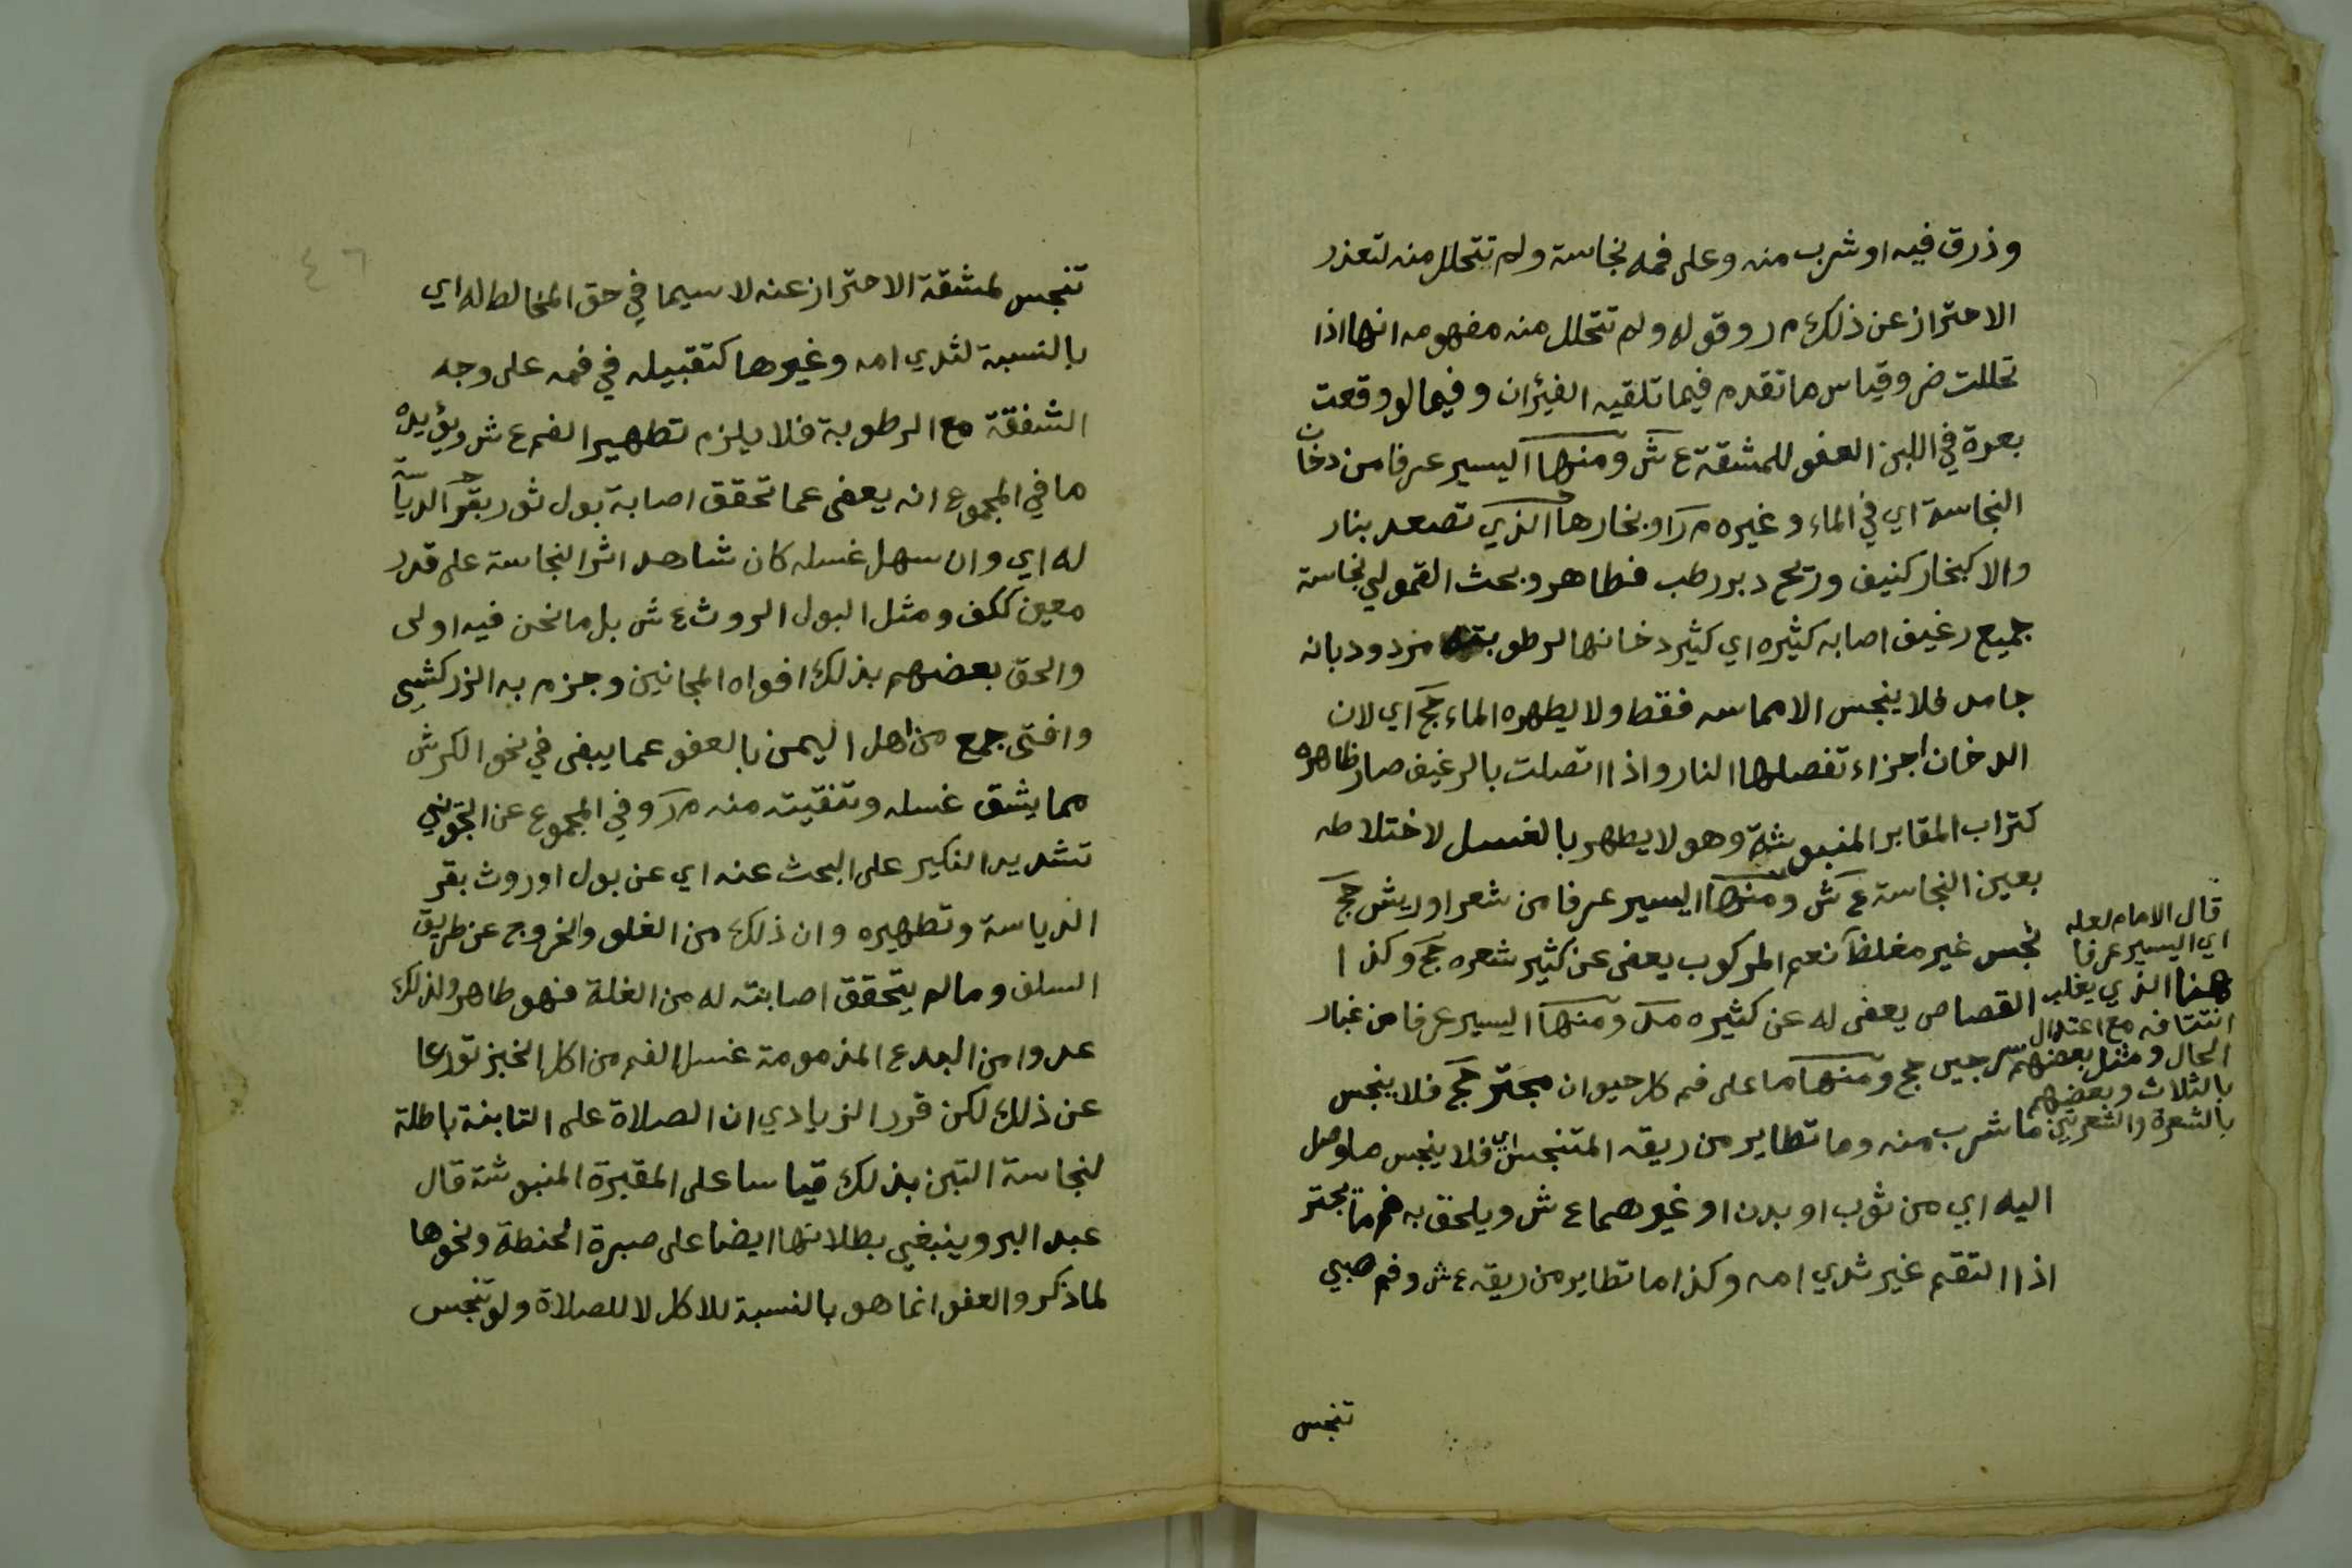 وذرق فيه او شرب منه وعلى فمه نجاسة ولم تتحلل منه لتعذر
الاحتراز عن ذلك م ر وقوله ولم تتحلل منه مفهومه انها اذا
تحللت ضر وقياس ما تقدم فيما تلقيه الفيران وفيما لو وقعت
بعرة في اللبن العفو للمشقة ع ش ومنها اليسير عرفا من دخان
النجاسة اي في الماء وغيره م ر او بخارها الذي تصعد بنار
والا كبخار كنيف وريح دبر رطب فطاهر وبحث القمولي نجاسة
جميع رغيف اصابه كثيره اي كثير دخانها الرطوبته مردود بانه
جامد فلا ينجس الا مماسه فقط ولا يطهره الماء حج اي لان
الدخان اجزاء تفصلها النار واذا اتصلت بالرغيف صار ظاهره
كتراب المقابر المنبوشة وهو لا يطهر بالغسل لاختلاطه
بعين النجاسة ع ش ومنها اليسير عرفا من شعر او ريش حج
نجس غير مغلظ نعم المركوب يعفى عن كثير شعره حج وكذا
القصاص يعفى له عن كثيره م ر ومنها اليسير عرفا من غبار
سرجين حج ومنها ما على فم كل حيوان مجتر حج فلا ينجس
ما شرب منه وما تطاير من ريقه المتنجس اي فلا ينجس ما وصل
اليه اي من ثوب او بدن او غيرهما ع ش ويلحق به فم ما يجتر
اذا التقم غير ثدي امه وكذا ما تطاير من ريقه ع ش وفم صبي
تنجس
قال الامام لعله
اي اليسير عرفا
هنا الذي يغلب
انتتافه مع اعتدال
الحال ومثل بعضهم
بالثلاث وبعضهم
بالشعرة والشعرتين
٤٦
تنجس لمشقة الاحتراز عنه لا سيما في حق المخالط له اي
بالنسبة لثدي امه وغيرها كتقبيله في فمه على وجه
الشفقة مع الرطوبة فلا يلزم تطهير الفم ع ش ويؤيده
ما في المجموع انه يعفى عما تحقق اصابة بول ثور بقر الدياسة
له اي وان سهل غسله كان شاهد اثر النجاسة على قدر
معين ككف ومثل البول الروث ع ش بل ما نحن فيه اولى
والحق بعضهم بذلك افواه المجانين وجزم به الزركشي
وافتى جمع من اهل اليمن بالعفو عما يبقى في نحو الكرش
مما يشق غسله وتنقيته منه م ر وفي المجموع عن الجويني
تشديد النكير على البحث عنه اي عن بول او روث بقر
الدياسة وتطهيره وان ذلك من الغلو والخروج عن طريق
السلف وما لم يتحقق اصابته له من الغلة فهو طاهر ولذلك
عدوا من البدع المذمومة غسل الفم من اكل الخبز تورعا
عن ذلك لكن قرر الزيادي ان الصلاة على التابنة باطلة
لنجاسة التبن بذلك قياسا على المقبرة المنبوشة قال
عبد البر وينبغي بطلانها ايضا على صبرة الحنطة ونحوها
لما ذكر والعفو انما هو بالنسبة للاكل لا للصلاة ولو تنجس